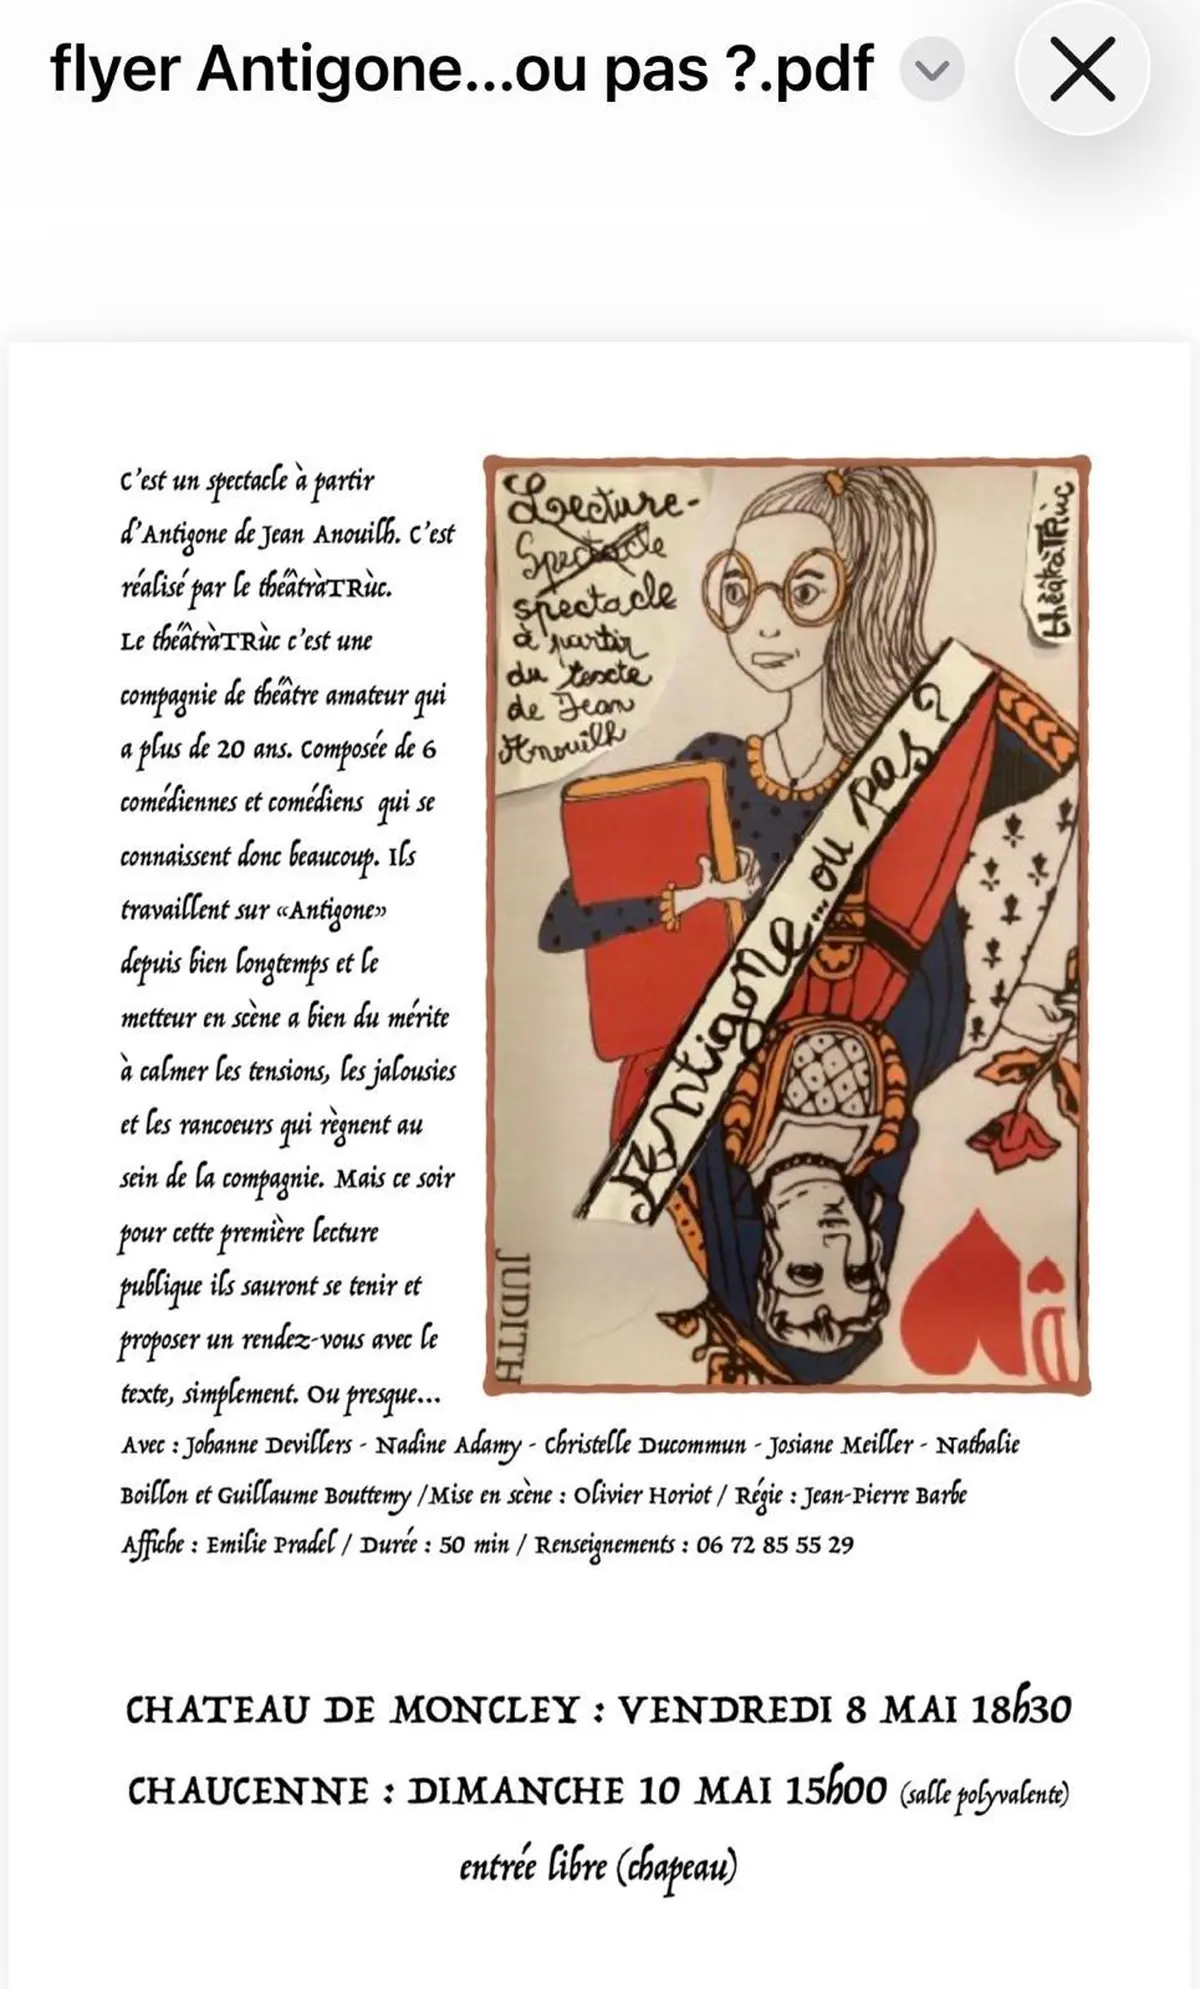 flyer Antigone...ou pas ?.pdf
C'est un spectacle à partir
d'Antigone de Jean Anouilh. C'est
réalisé par le théâtràTRùc.
Le théâtràTRùc c'est une
compagnie de théâtre amateur qui
a plus de 20 ans. Composée de 6
comédiennes et comédiens qui se
connaissent donc beaucoup. Ils
travaillent sur «Antigone»
depuis bien longtemps et le
metteur en scène a bien du mérite
à calmer les tensions, les jalousies
et les rancoeurs qui règnent au
sein de la compagnie. Mais ce soir
pour cette première lecture
publique ils sauront se tenir et
proposer un rendez-vous avec le
texte, simplement. Ou presque...
Lecture-
Spectacle
spectacle
à partir
du texte
de Jean
Anouilh
théâtràTRùc
Antigone... ou pas ?
JUDITH
D
Avec : Johanne Devillers - Nadine Adamy - Christelle Ducommun - Josiane Meiller - Nathalie
Boillon et Guillaume Bouttemy /Mise en scène : Olivier Horiot / Régie : Jean-Pierre Barbe
Affiche : Emilie Pradel / Durée : 50 min / Renseignements : 06 72 85 55 29
CHATEAU DE MONCLEY : VENDREDI 8 MAI 18h30
CHAUCENNE : DIMANCHE 10 MAI 15h00 (salle polyvalente)
entrée libre (chapeau)